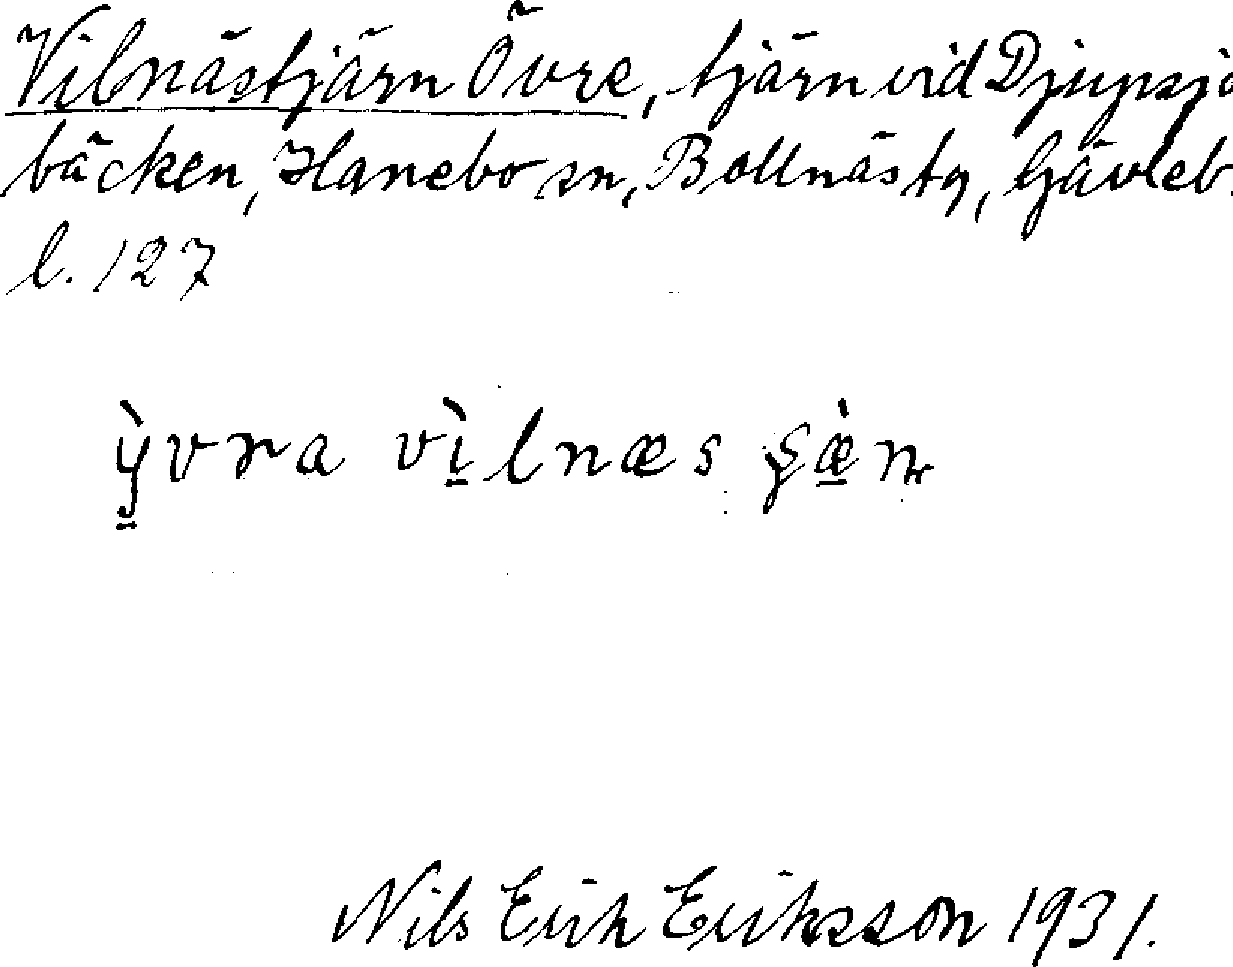 Vilnästjärn Övre, tjärn vid Djupsjö
bäcken, Hanebo sn, Bollnäs tg, Gävleb.
l. 127
ỳ̱vra vì̱lnæs ʂæ̱̀ɳ
Nils Erik Eriksson 1931.